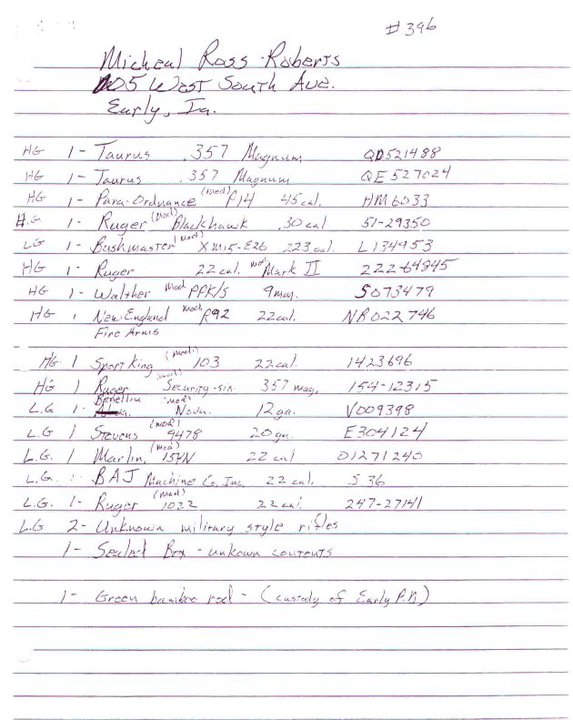 # 396
Micheal Ross Roberts
West South Ave.
Early, Ia.
HG 1- Taurus .357 Magnum QD521488
HG 1- Taurus .357 Magnum QE527024
HG 1- Para-Ordnance (mod) P14 45 cal. HM6033
H.G 1- Ruger (mod) Blackhawk .30 cal 51-29350
LG 1- Bushmaster (mod) XM15-E2S 223 cal. L134953
HG 1- Ruger 22 cal. mod Mark II 222-64945
HG 1- Walther mod PPK/S 9mm. S073479
HG 1 New England mod R92 22 cal. NB022746
Fire Arms
HG 1 Sport King (mod) 103 22 cal. 1423696
HG 1 Ruger Security-six 357 mag. 154-12315
L.G 1- Benellia (mod) Nova 12 ga. V009398
L.G 1 Stevens (mod) 9478 20 ga. E304124
L.G. 1 Marlin, (mod) 15YN 22 cal 01271240
L.G. 1- BAJ Machine Co, Inc. 22 cal. S 36
L.G. 1- Ruger (mod) 1022 22 cal. 247-27141
LG 2- Unknown military style rifles
1- Sealed Box - unkown contents
1- Green bamboo rod - (custody of Early P.D)